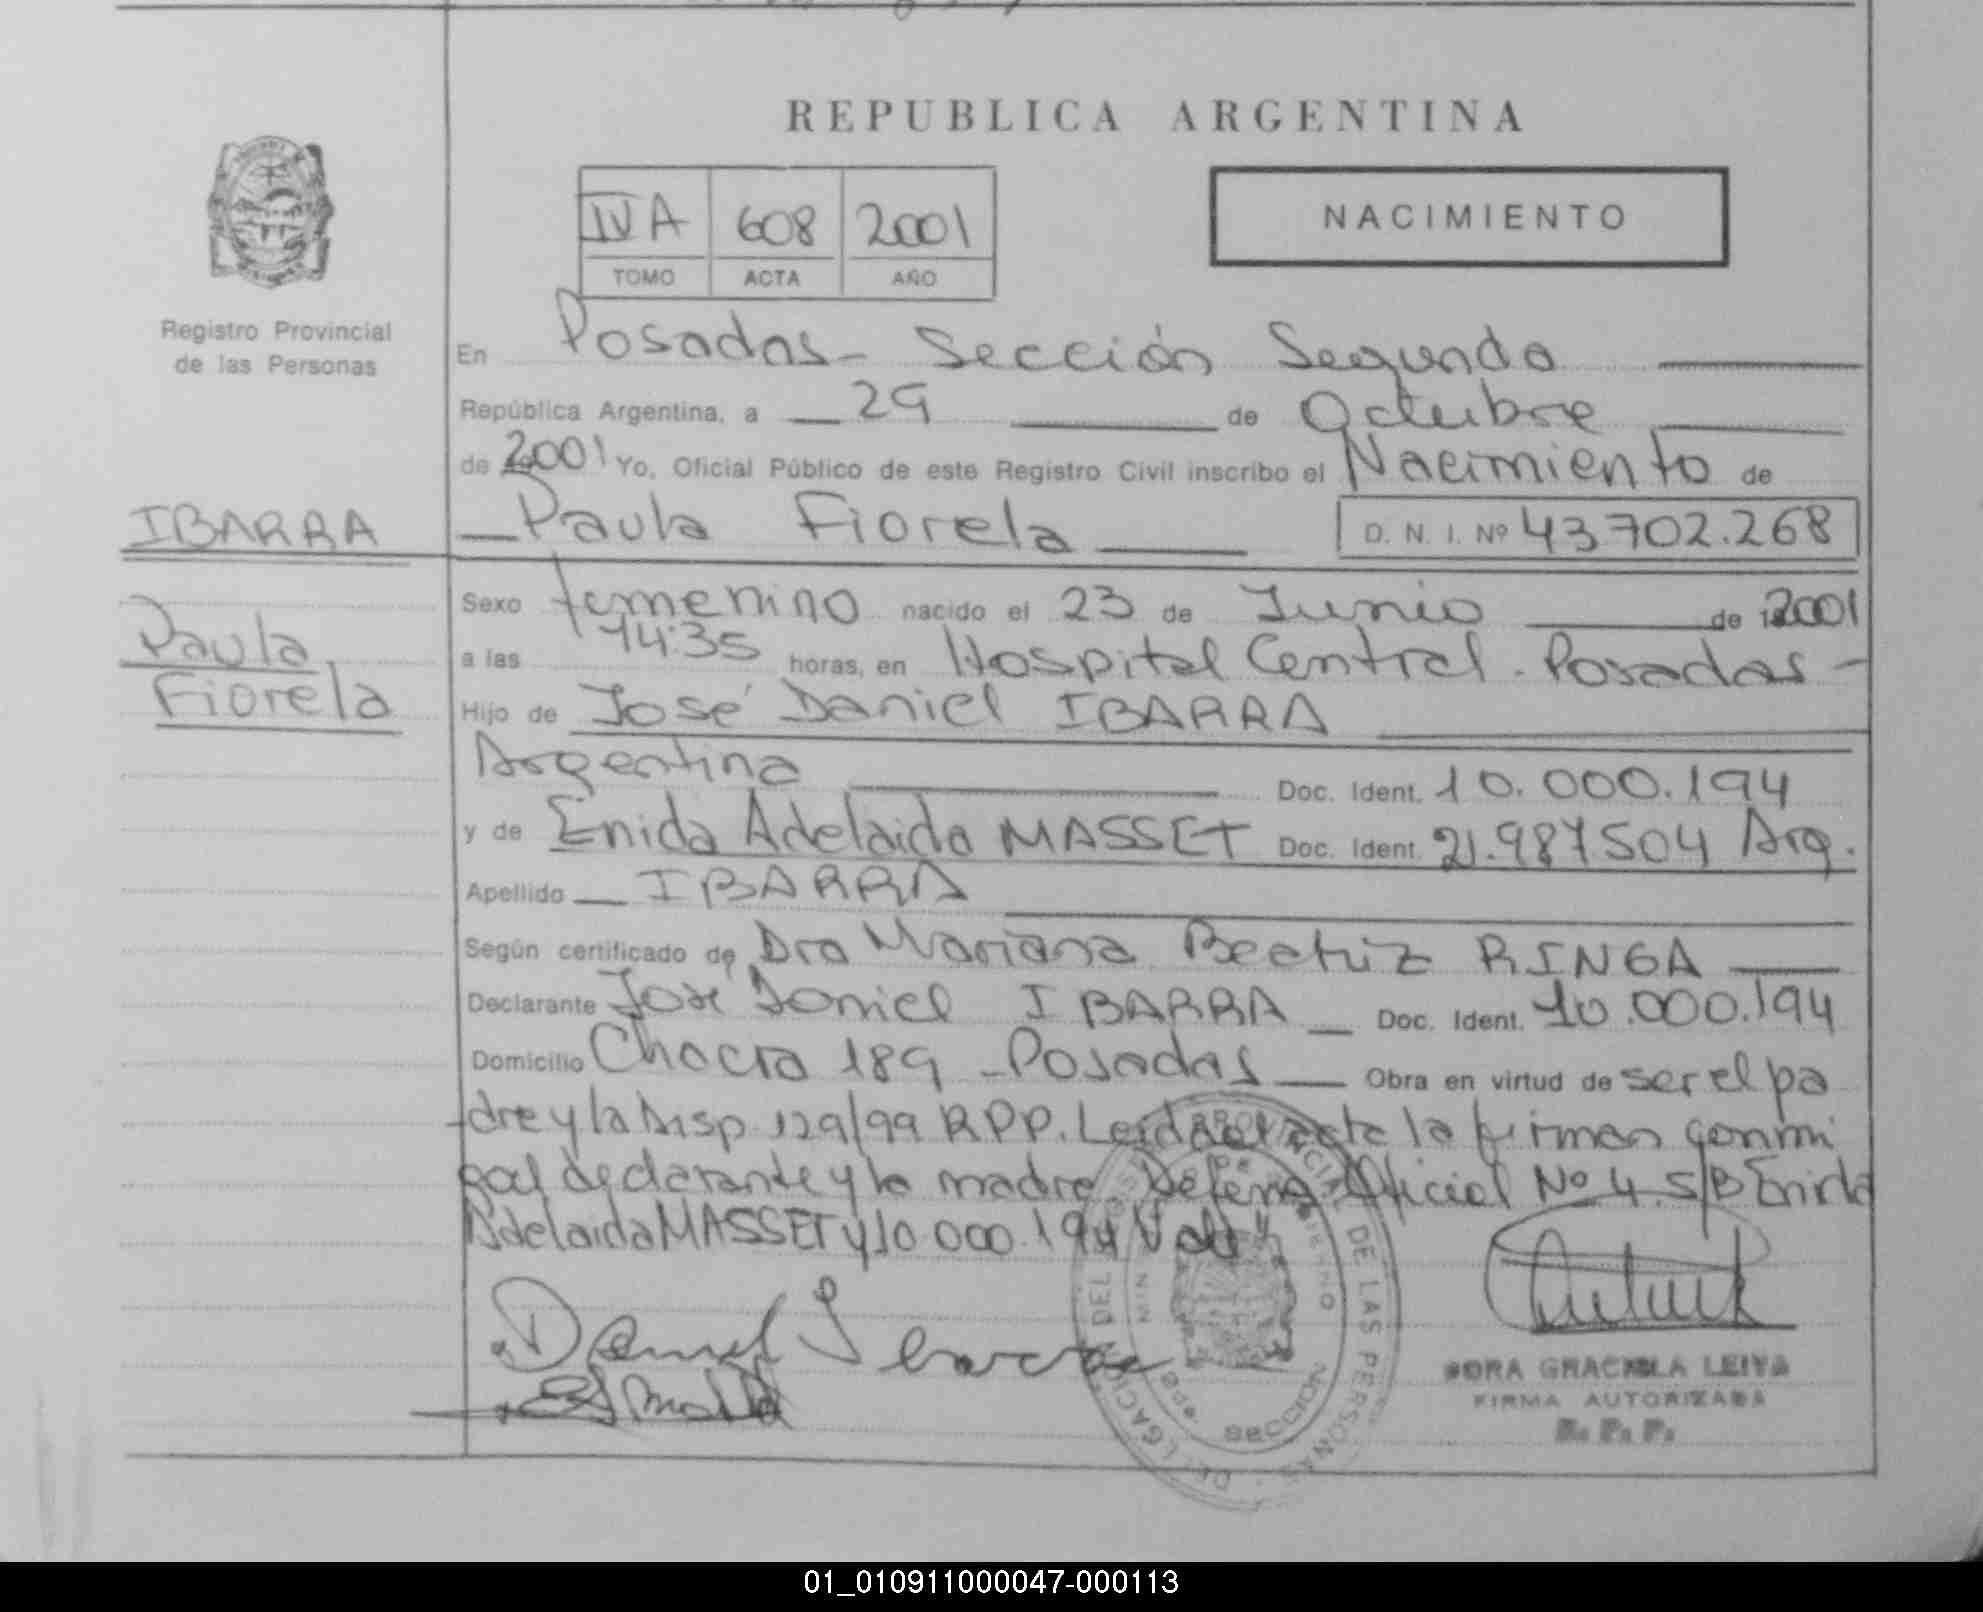 REPUBLICA ARGENTINA
IVA 608 2001
TOMO ACTA AÑO
NACIMIENTO
Registro Provincial
de las Personas
En Posadas - Sección Segunda
República Argentina, a 29 de Octubre
de 2001 Yo, Oficial Público de este Registro Civil inscribo el Nacimiento de
IBARRA
Paula Fiorela D. N. I. Nº 43.702.268
Paula
Fiorela
Sexo femenino nacido el 23 de Junio de 2001
a las 14:35 horas, en Hospital Central - Posadas -
Hijo de José Daniel IBARRA
Argentina Doc. Ident. 10.000.194
y de Enida Adelaida MASSET Doc. Ident. 21.987504 Arg.
Apellido IBARRA
Según certificado de Dra Mariana Beatriz RINGA
Declarante José Daniel IBARRA Doc. Ident. 10.000.194
Domicilio Chacra 189 - Posadas Obra en virtud de ser el pa
dre y la Disp 129/99 RPP. Leida el acta la firman conmi
go el declarante y la madre Oficial Nº 4. S/B Enida
Adelaida MASSET y 10.000.194 Vale
Daniel Ibarra
DORA GRACIELA LEIVA
FIRMA AUTORIZADA
R. P. P.
DELEGACION DEL REGISTRO PROVINCIAL DE LAS PERSONAS
SECCION
01_010911000047-000113